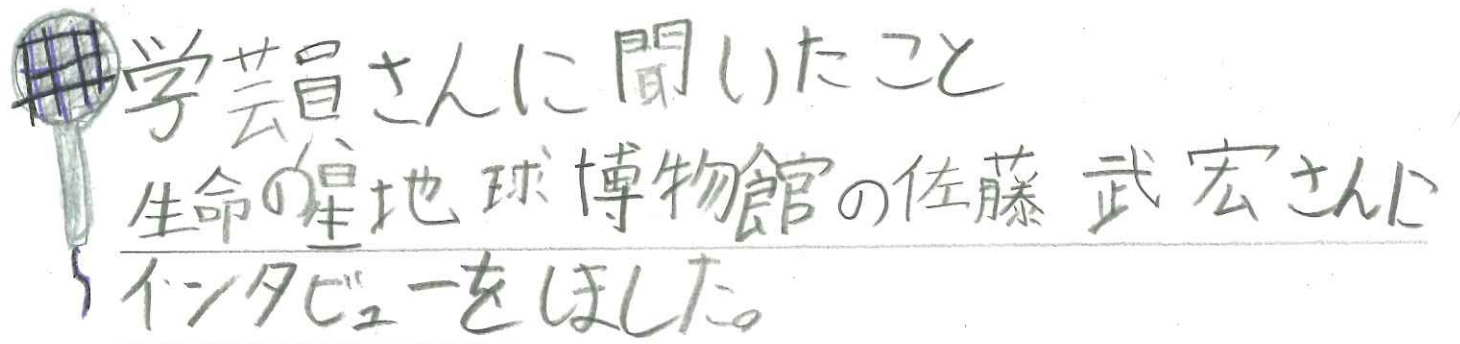 学芸員さんに聞いたこと
生命の星地球博物館の佐藤 武宏さんに
インタビューをしました。